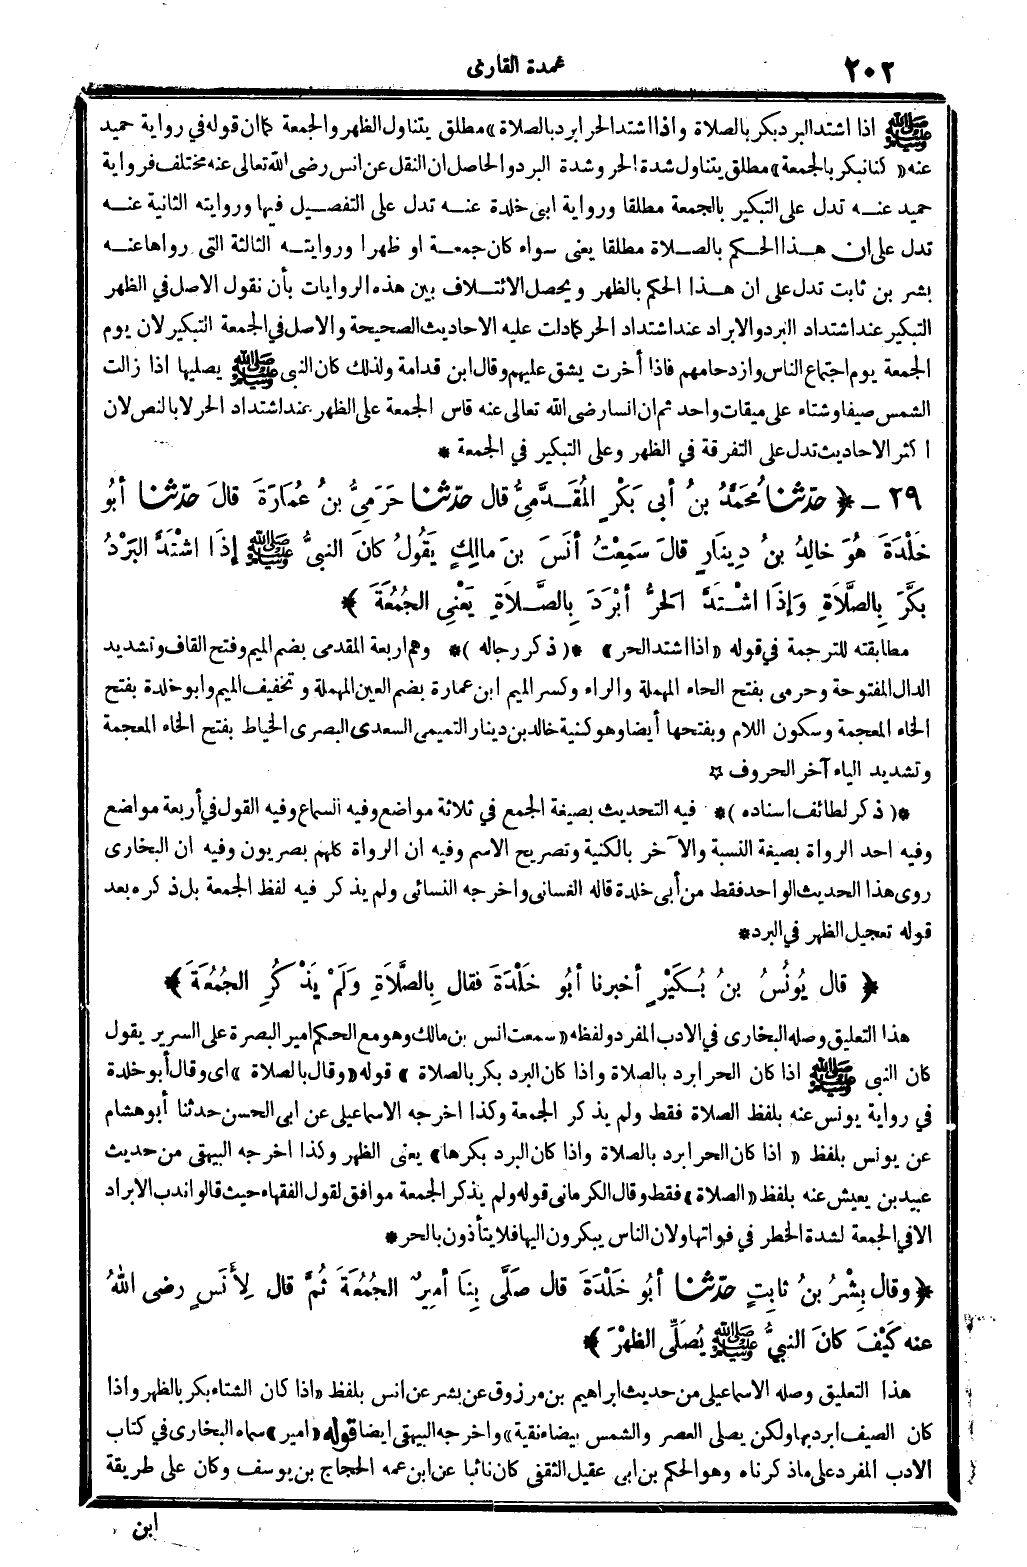 ٢٠٢
عمدة القارئ
ﷺ اذا اشتد البرد بكر بالصلاة واذا اشتد الحر ابرد بالصلاة» مطلق يتناول الظهر والجمعة كما ان قوله في رواية حميد
عنه «كنا نبكر بالجمعة» مطلق يتناول شدة الحر وشدة البرد والحاصل ان النقل عن انس رضى الله تعالى عنه مختلف فرواية
حميد عنه تدل على التبكير بالجمعة مطلقا ورواية ابى خلدة عنه تدل على التفصيل فيها وروايته الثانية عنه
تدل على ان هذا الحكم بالصلاة مطلقا يعنى سواء كان جمعة او ظهرا وروايته الثالثة التى رواها عنه
بشر بن ثابت تدل على ان هذا الحكم بالظهر ويحصل الائتلاف بين هذه الروايات بأن نقول الاصل في الظهر
التبكير عند اشتداد البرد والابراد عند اشتداد الحر كما دلت عليه الاحاديث الصحيحة والاصل في الجمعة التبكير لان يوم
الجمعة يوم اجتماع الناس وازدحامهم فاذا أخرت يشق عليهم وقال ابن قدامة ولذلك كان النبى ﷺ يصليها اذا زالت
الشمس صيفا وشتاء على ميقات واحد ثم ان انسا رضى الله تعالى عنه قاس الجمعة على الظهر عند اشتداد الحر لا بالنص لان
اكثر الاحاديث تدل على التفرقة في الظهر وعلى التبكير في الجمعة *
٢٩ ـ ﴿ حدّثنا مُحَمَّدُ بنُ أبى بَكْرٍ المُقَدَّمِىُّ قال حدّثنا حَرَمِىُّ بنُ عُمَارَةَ قالَ حدّثنا أبُو
خَلْدَةَ هُوَ خالِدُ بنُ دِينَارٍ قالَ سَمِعْتُ أنَسَ بنَ مالِكٍ يَقُولُ كانَ النبىُّ ﷺ إذَا اشْتَدَّ البَرْدُ
بَكَّرَ بِالصَّلَاةِ وَإذَا اشْتَدَّ الحَرُّ أبْرَدَ بِالصَّلَاةِ يَعْنِى الجُمُعَةَ ﴾ *
مطابقته للترجمة في قوله «اذا اشتد الحر» *(ذكر رجاله)* وهم اربعة المقدمى بضم الميم وفتح القاف وتشديد
الدال المفتوحة وحرمى بفتح الحاء المهملة والراء وكسر الميم ابن عمارة بضم العين المهملة وتخفيف الميم وابو خلدة بفتح
الخاء المعجمة وسكون اللام وبفتحها أيضا وهو كنية خالد بن دينار التميمى السعدى البصرى الخياط بفتح الخاء المعجمة
وتشديد الياء آخر الحروف ☆
*(ذكر لطائف اسناده)* فيه التحديث بصيغة الجمع في ثلاثة مواضع وفيه السماع وفيه القول في أربعة مواضع
وفيه احد الرواة بصيغة النسبة والآخر بالكنية وتصريح الاسم وفيه ان الرواة كلهم بصريون وفيه ان البخارى
روى هذا الحديث الواحد فقط من أبى خلدة قاله الغسانى واخرجه النسائى ولم يذكر فيه لفظ الجمعة بل ذكره بعد
قوله تعجيل الظهر في البرد*
﴿ قال يُونُسُ بنُ بُكَيْرٍ أخبرنا أبُو خَلْدَةَ فقال بِالصَّلَاةِ وَلَمْ يَذْكُرِ الجُمُعَةَ ﴾*
هذا التعليق وصله البخارى في الادب المفرد ولفظه «سمعت انس بن مالك وهو مع الحكم امير البصرة على السرير يقول
كان النبى ﷺ اذا كان الحر ابرد بالصلاة واذا كان البرد بكر بالصلاة» قوله «وقال بالصلاة» اى وقال أبو خلدة
في رواية يونس عنه بلفظ الصلاة فقط ولم يذكر الجمعة وكذا اخرجه الاسماعيلى عن ابى الحسن حدثنا أبو هشام
عن يونس بلفظ «اذا كان الحر ابرد بالصلاة واذا كان البرد بكرها» يعنى الظهر وكذا اخرجه البيهقى من حديث
عبيد بن يعيش عنه بلفظ «الصلاة» فقط وقال الكرمانى قوله ولم يذكر الجمعة موافق لقول الفقهاء حيث قالوا ندب الابراد
الا في الجمعة لشدة الخطر في فواتها ولان الناس يبكرون اليها فلا يتأذون بالحر*
﴿ وقال بِشْرُ بنُ ثابِتٍ حدّثنا أبُو خَلْدَةَ قال صَلَّى بِنَا أمِيرٌ الجُمُعَةَ ثُمَّ قال لِأَنَسٍ رضى اللهُ
عنه كَيْفَ كانَ النبىُّ ﷺ يُصَلِّى الظُّهْرَ ﴾*
هذا التعليق وصله الاسماعيلى من حديث ابراهيم بن مرزوق عن بشر عن انس بلفظ «اذا كان الشتاء بكر بالظهر واذا
كان الصيف ابرد بها ولكن يصلى العصر والشمس بيضاء نقية» واخرجه البيهقى ايضا قوله «امير» سماه البخارى في كتاب
الادب المفرد على ما ذكرناه وهو الحكم بن ابى عقيل الثقفى كان نائبا عن ابن عمه الحجاج بن يوسف وكان على طريقة
ابن